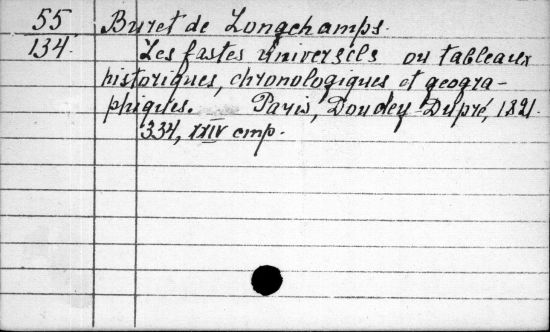 55
134.
Buret de Longchamps.
Les fastes universels ou tableaux
historiques, chronologiques et geogra-
phiques. Paris, Dondey-Dupré, 1821.
334, XXIV стр.